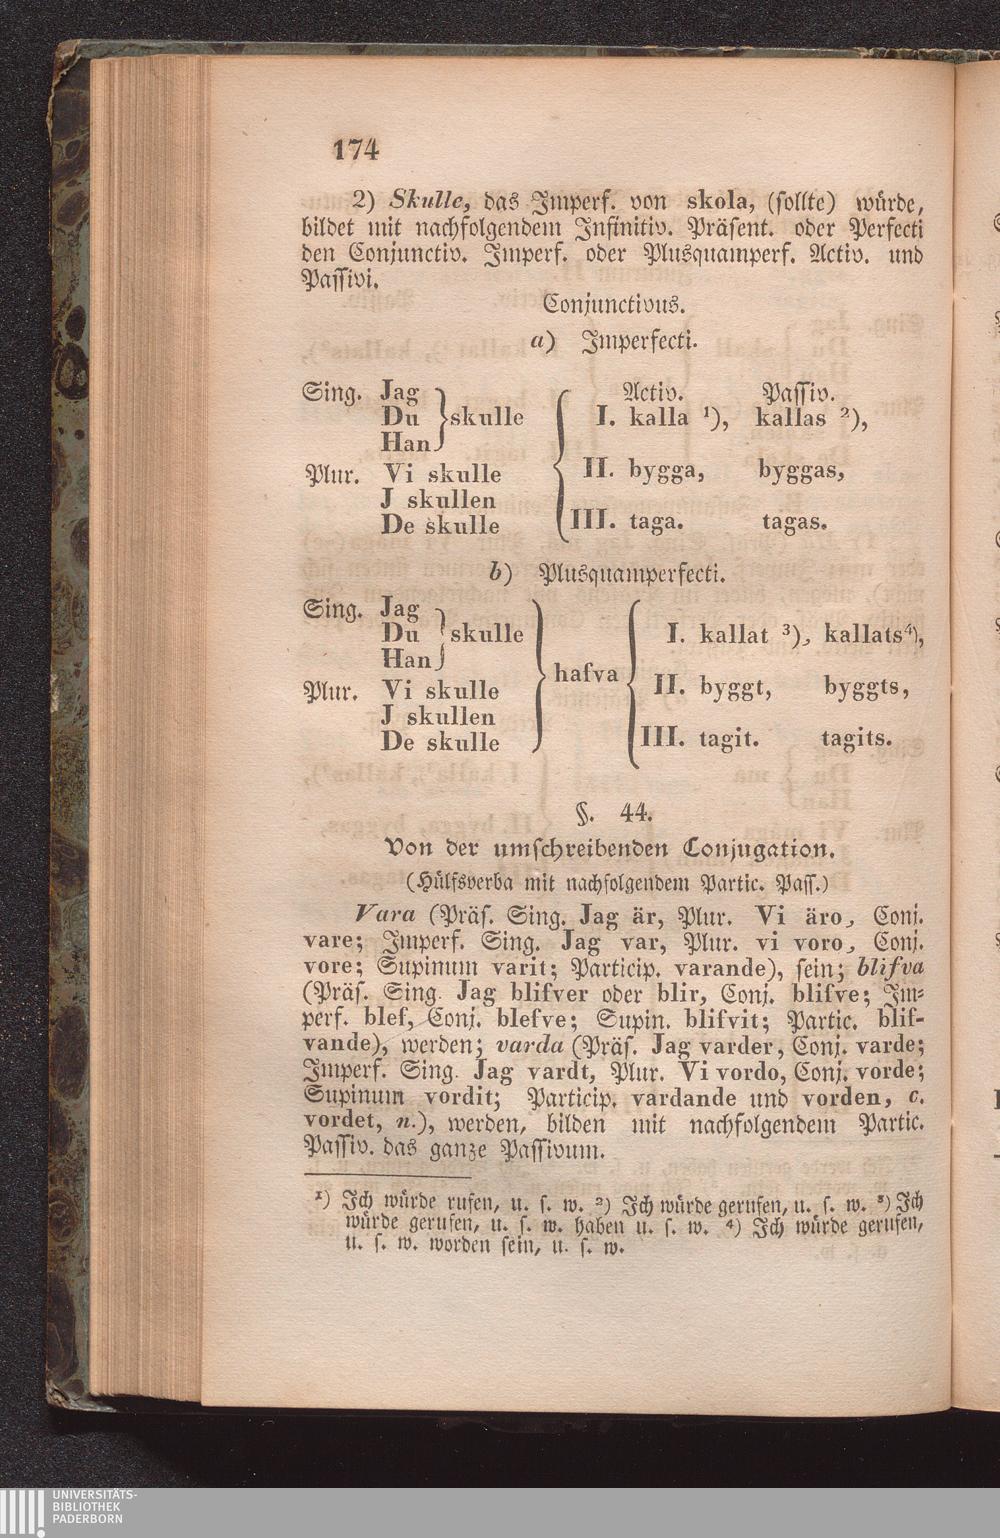 174
2) Skulle, das Imperf. von skola, (sollte) würde,
bildet mit nachfolgendem Infinitiv. Präsent. oder Perfecti
den Conjunctiv. Imperf. oder Plusquamperf. Activ. und
Passivi.
Conjunctivus.
a) Imperfecti.
Sing. Jag Activ. Passiv.
Du skulle I. kalla ¹), kallas ²),
Han
Plur. Vi skulle II. bygga, byggas,
J skullen
De skulle III. taga. tagas.
b) Plusquamperfecti.
Sing. Jag
Du skulle I. kallat ³), kallats⁴),
Han
hafva
Plur. Vi skulle II. byggt, byggts,
J skullen
De skulle III. tagit. tagits.
§. 44.
Von der umschreibenden Conjugation.
(Hülfsverba mit nachfolgendem Partic. Pass.)
Vara (Präs. Sing. Jag är, Plur. Vi äro, Conj.
vare; Imperf. Sing. Jag var, Plur. vi voro, Conj.
vore; Supinum varit; Particip. varande), sein; blifva
(Präs. Sing. Jag blifver oder blir, Conj. blifve; Im-
perf. blef, Conj. blefve; Supin. blifvit; Partic. blif-
vande), werden; varda (Präs. Jag varder, Conj. varde;
Imperf. Sing. Jag vardt, Plur. Vi vordo, Conj. vorde;
Supinum vordit; Particip. vardande und vorden, c.
vordet, n.), werden, bilden mit nachfolgendem Partic.
Passiv. das ganze Passivum.
¹) Ich würde rufen, u. s. w. ²) Ich würde gerufen, u. s. w. ³) Ich
würde gerufen, u. s. w. haben u. s. w. ⁴) Ich würde gerufen,
u. s. w. worden sein, u. s. w.
UNIVERSITÄTS-
BIBLIOTHEK
PADERBORN